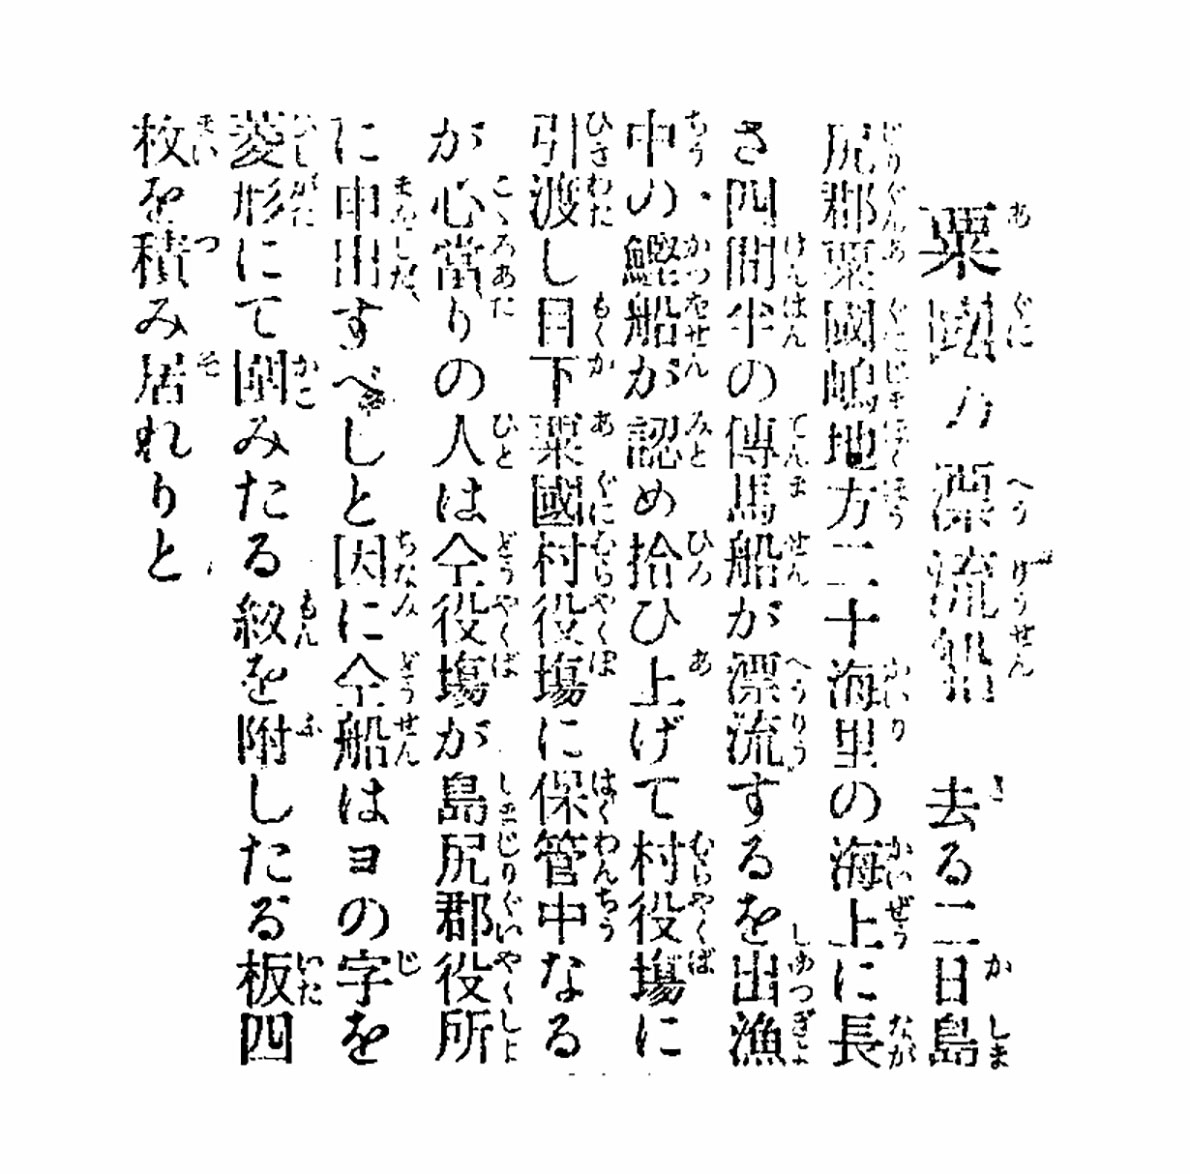 粟國の漂流船　去る二日島
尻郡粟國嶋地方二十海里の海上に長
さ四間半の傳馬船が漂流するを出漁
中の鰹船が認め拾ひ上げて村役塲に
引渡し目下粟國村役塲に保管中なる
が心當りの人は仝役塲が島尻郡役所
に申出すべしと因に仝船はヨの字を
菱形にて圍みたる紋を附したる板四
枚を積み居れりと